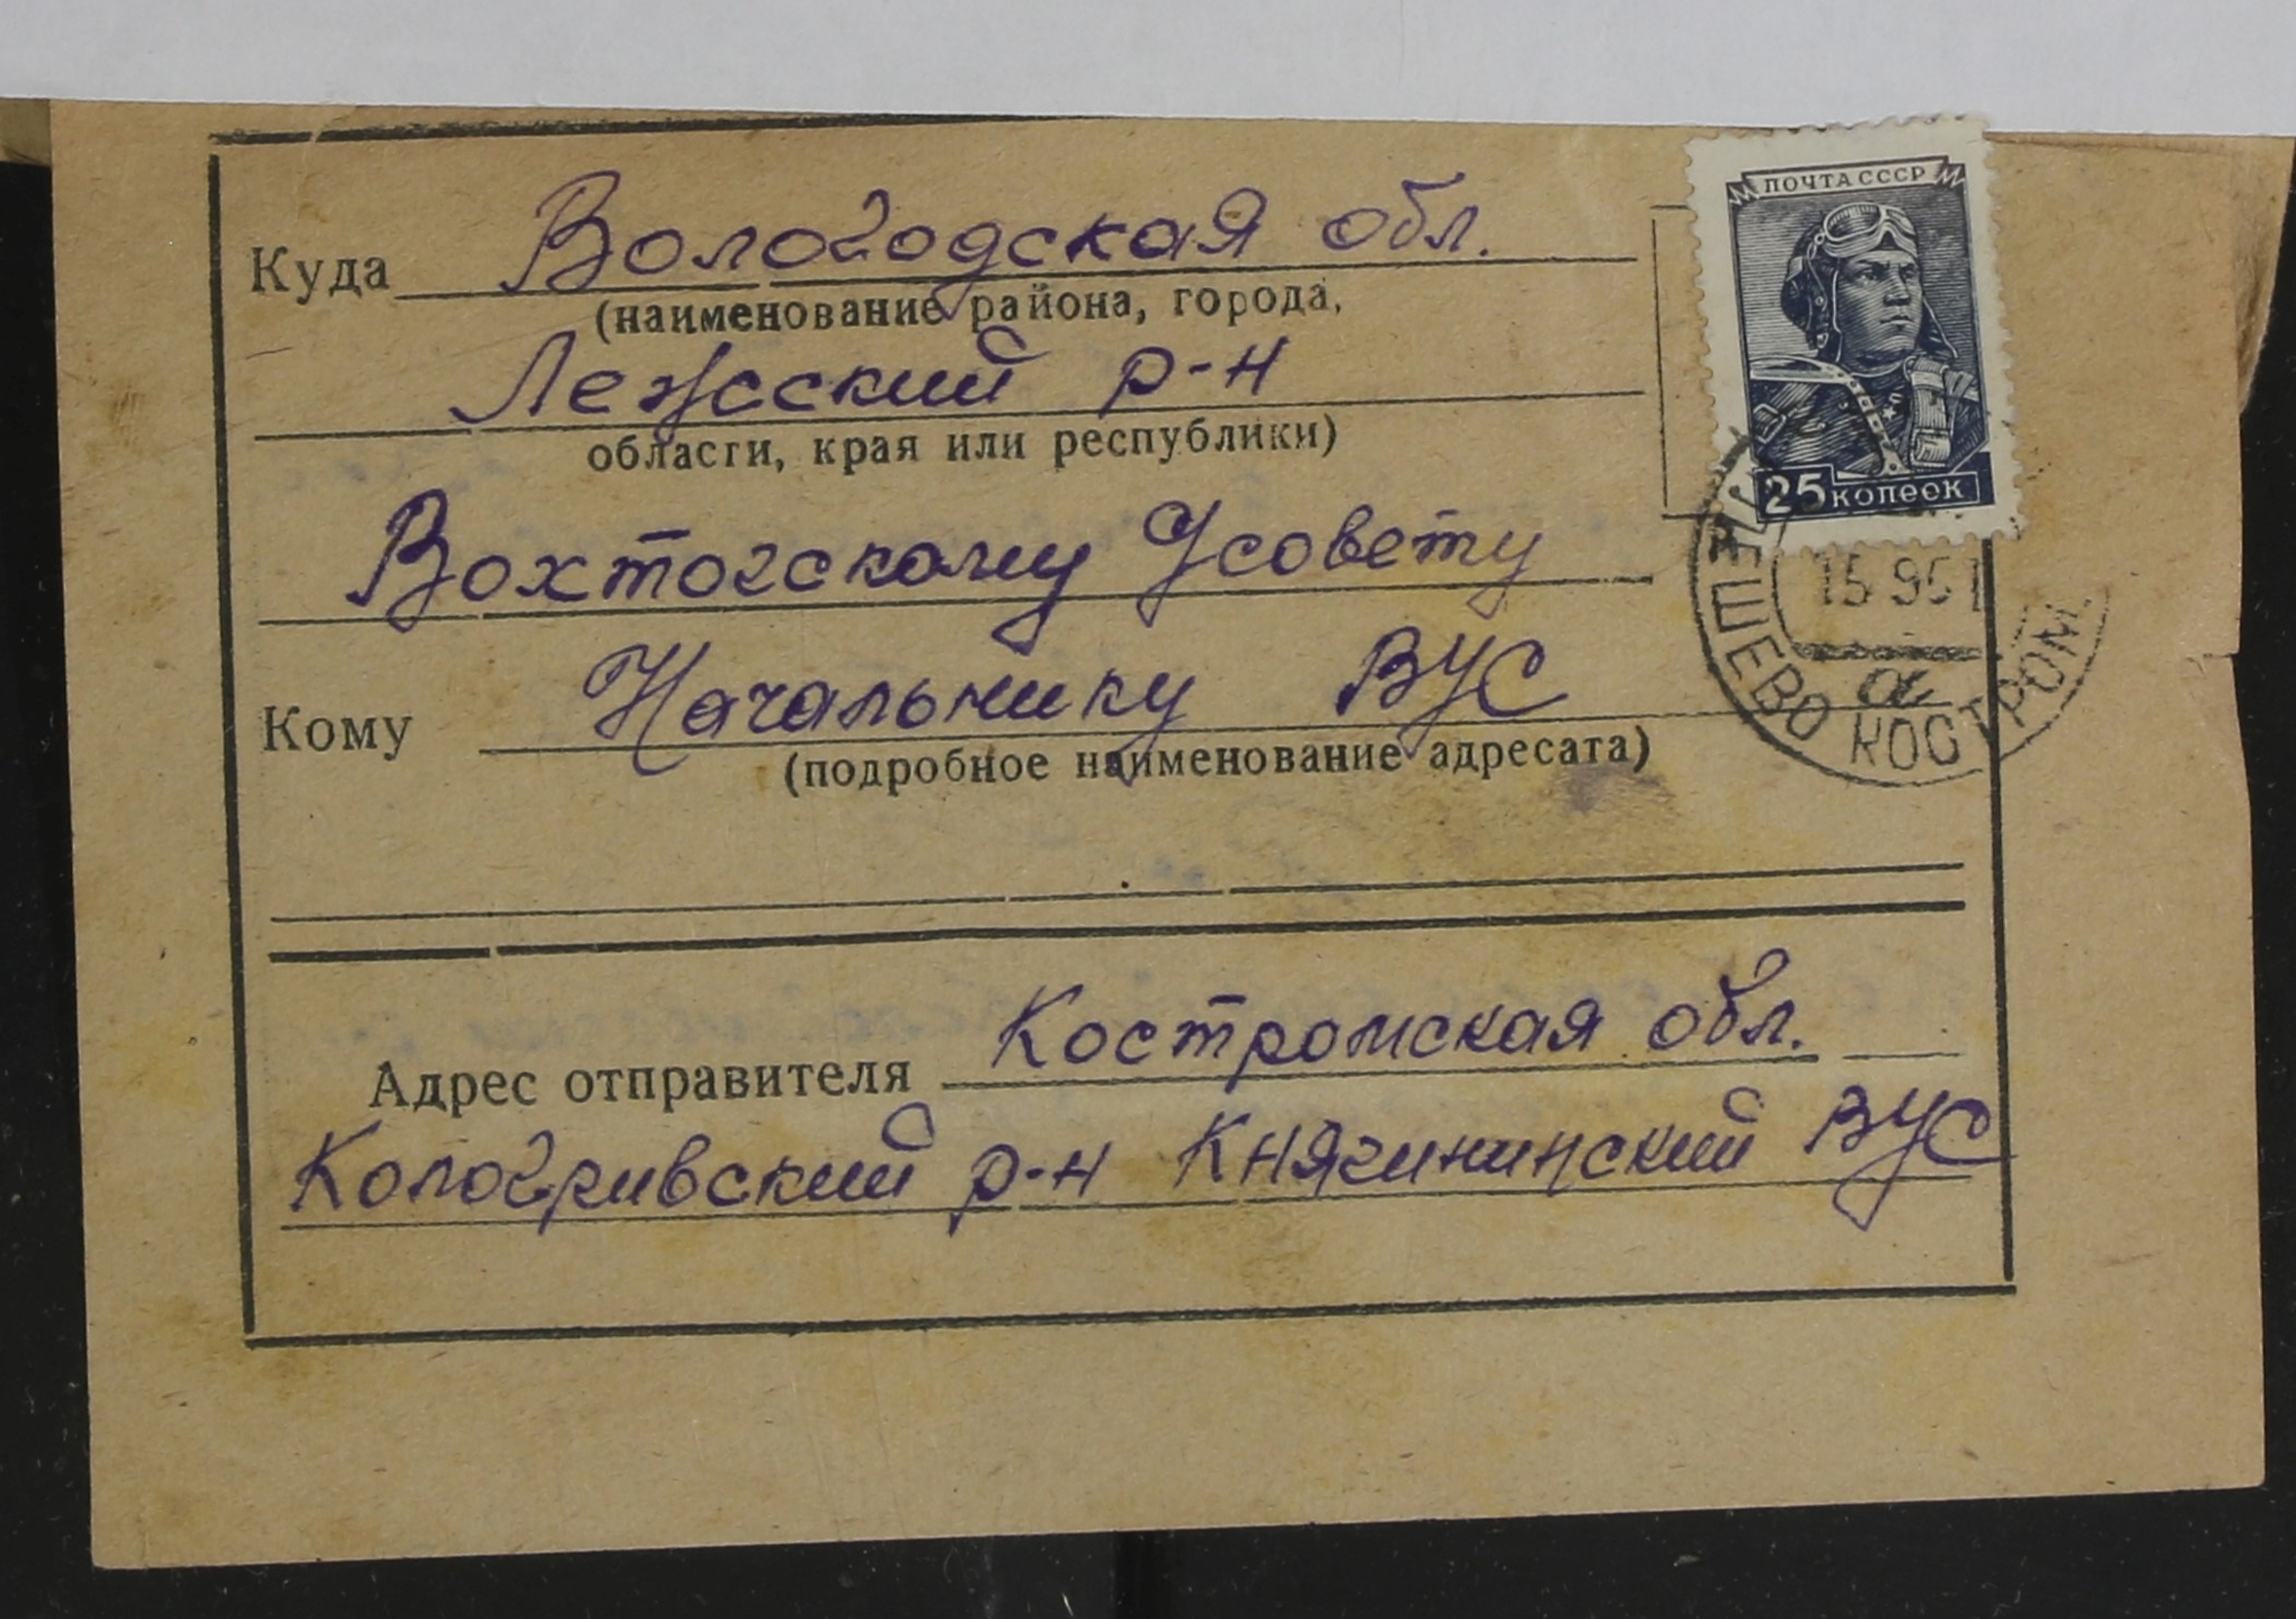 ПОЧТА СССР
Куда Вологодская обл.
(наименование района, города,
Лежсский р-н
области, края или республики)
25 копеек
Вохтогскому Усовету
15 9 51
Кому Начальнику ВУС
(подробное наименование адресата)
а
КОСТРОМ.
Адрес отправителя Костромская обл.
Кологривский р-н Княгининский ВУС